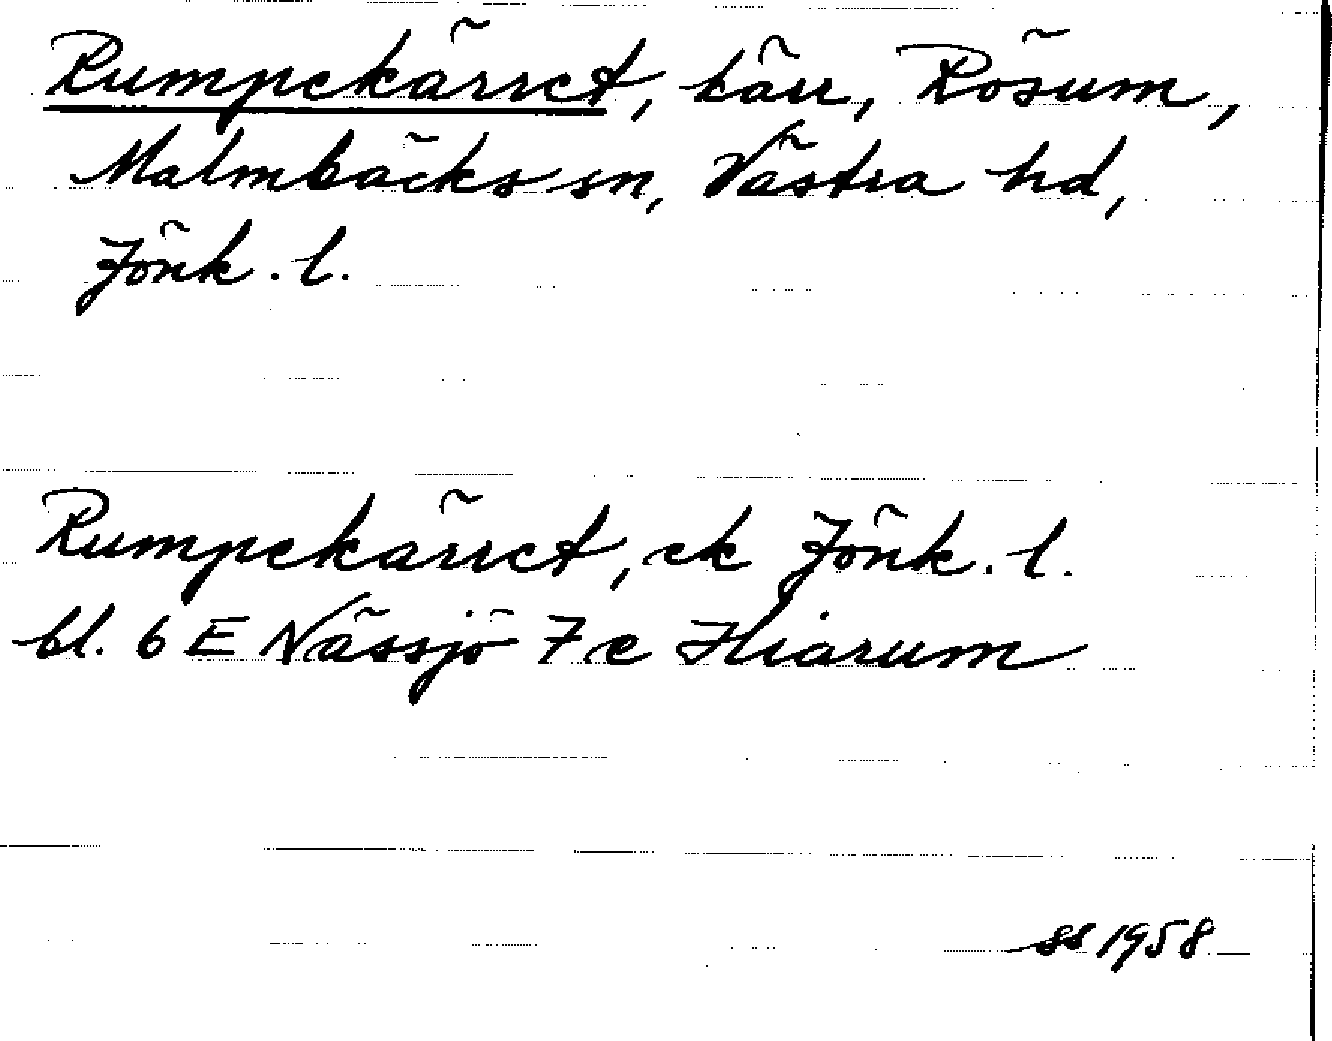 Rumpekärret, kärr, Rösum,
Malmbäcks sn, Västra hd,
Jönk. l.
Rumpekärret, ek Jönk. l.
bl. 6 E Nässjö 7 e Hiarum
ss 1958